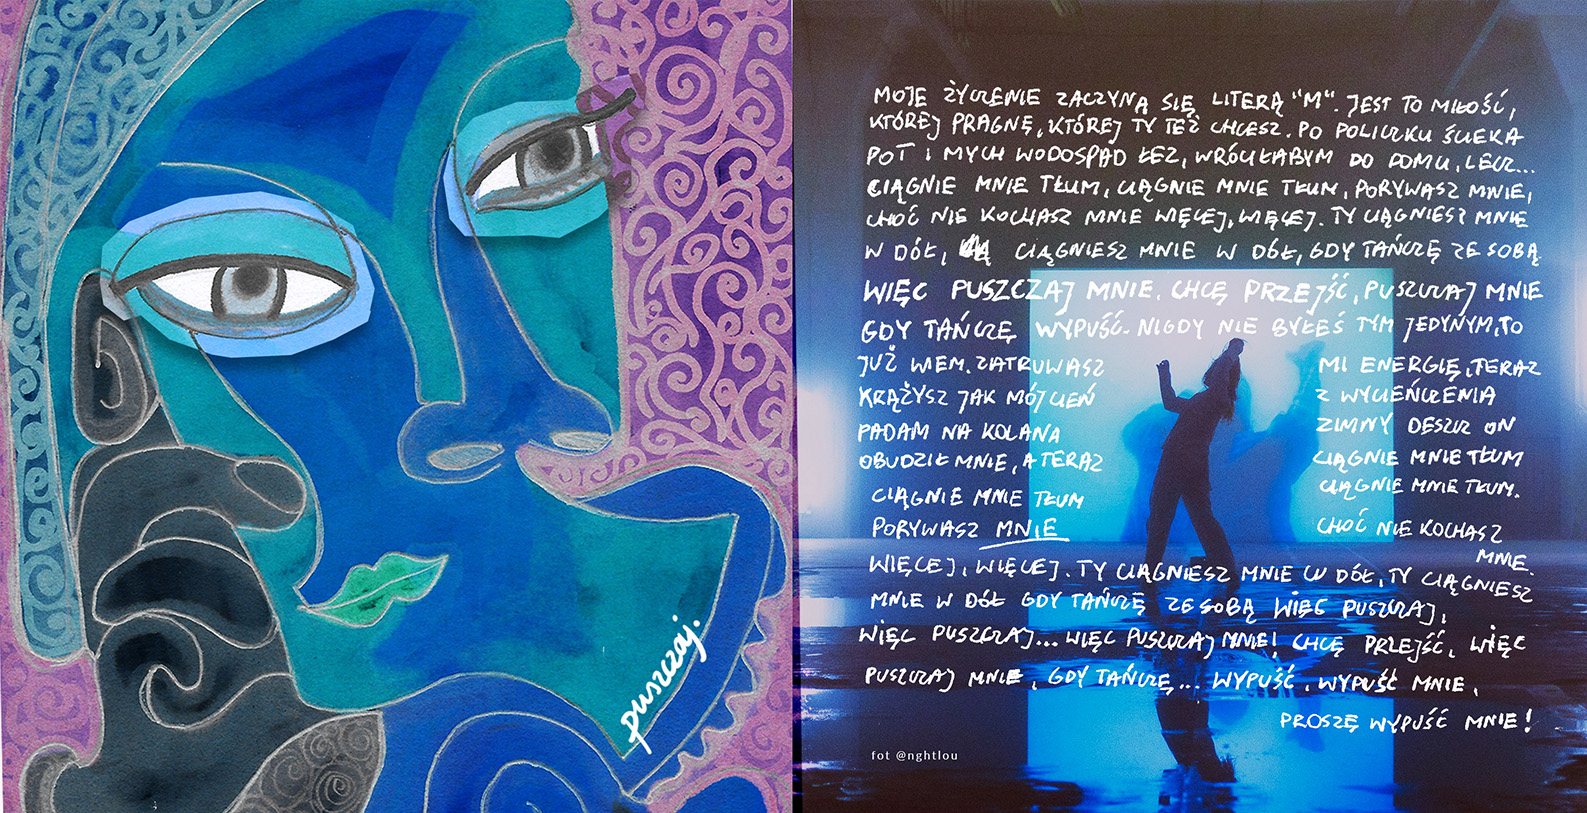 puszczaj.
MOJE ŻYCZENIE ZACZYNA SIĘ LITERĄ "M". JEST TO MIŁOŚĆ,
KTÓREJ PRAGNĘ, KTÓREJ TY TEŻ CHCESZ. PO POLICZKU ŚCIEKA
POT I MYCH WODOSPAD ŁEZ, WRÓCIŁABYM DO DOMU, LECZ...
CIĄGNIE MNIE TŁUM, CIĄGNIE MNIE TŁUM, PORYWASZ MNIE,
CHOĆ NIE KOCHASZ MNIE WIĘCEJ, WIĘCEJ. TY CIĄGNIESZ MNIE
W DÓŁ, CIĄGNIESZ MNIE W DÓŁ, GDY TAŃCZĘ ZE SOBĄ
WIĘC PUSZCZAJ MNIE. CHCĘ PRZEJŚĆ, PUSZCZAJ MNIE
GDY TAŃCZĘ WYPUŚĆ. NIGDY NIE BYŁEŚ TYM JEDYNYM, TO
JUŻ WIEM. ZATRUWASZ MI ENERGIĘ, TERAZ
KRĄŻYSZ JAK MÓJ CIEŃ Z WYCIEŃCZENIA
PADAM NA KOLANA ZIMNY DESZCZ ON
OBUDZIŁ MNIE, A TERAZ CIĄGNIE MNIE TŁUM
CIĄGNIE MNIE TŁUM CIĄGNIE MNIE TŁUM.
PORYWASZ MNIE CHOĆ NIE KOCHASZ
MNIE.
WIĘCEJ, WIĘCEJ. TY CIĄGNIESZ MNIE W DÓŁ, TY CIĄGNIESZ
MNIE W DÓŁ GDY TAŃCZĘ ZE SOBĄ WIĘC PUSZCZAJ,
WIĘC PUSZCZAJ... WIĘC PUSZCZAJ MNIE! CHCĘ PRZEJŚĆ, WIĘC
PUSZCZAJ MNIE, GDY TAŃCZĘ... WYPUŚĆ, WYPUŚĆ MNIE,
PROSZĘ WYPUŚĆ MNIE!
fot @nghtlou